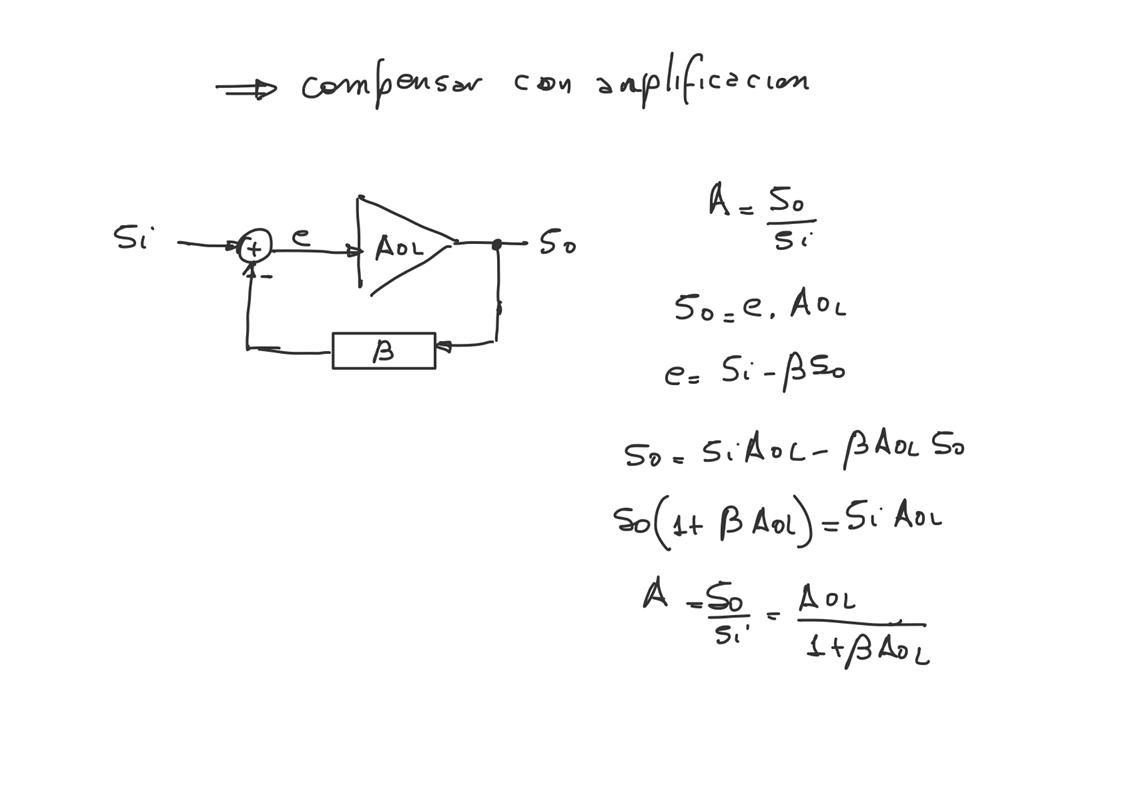 ⟹ compensar con amplificacion
Si + e AOL So
-
β
A = So/Si
So = e . AOL
e = Si - βSo
So = Si AOL - β AOL So
So(1 + β AOL) = Si AOL
A = So/Si = AOL/1 + β AOL